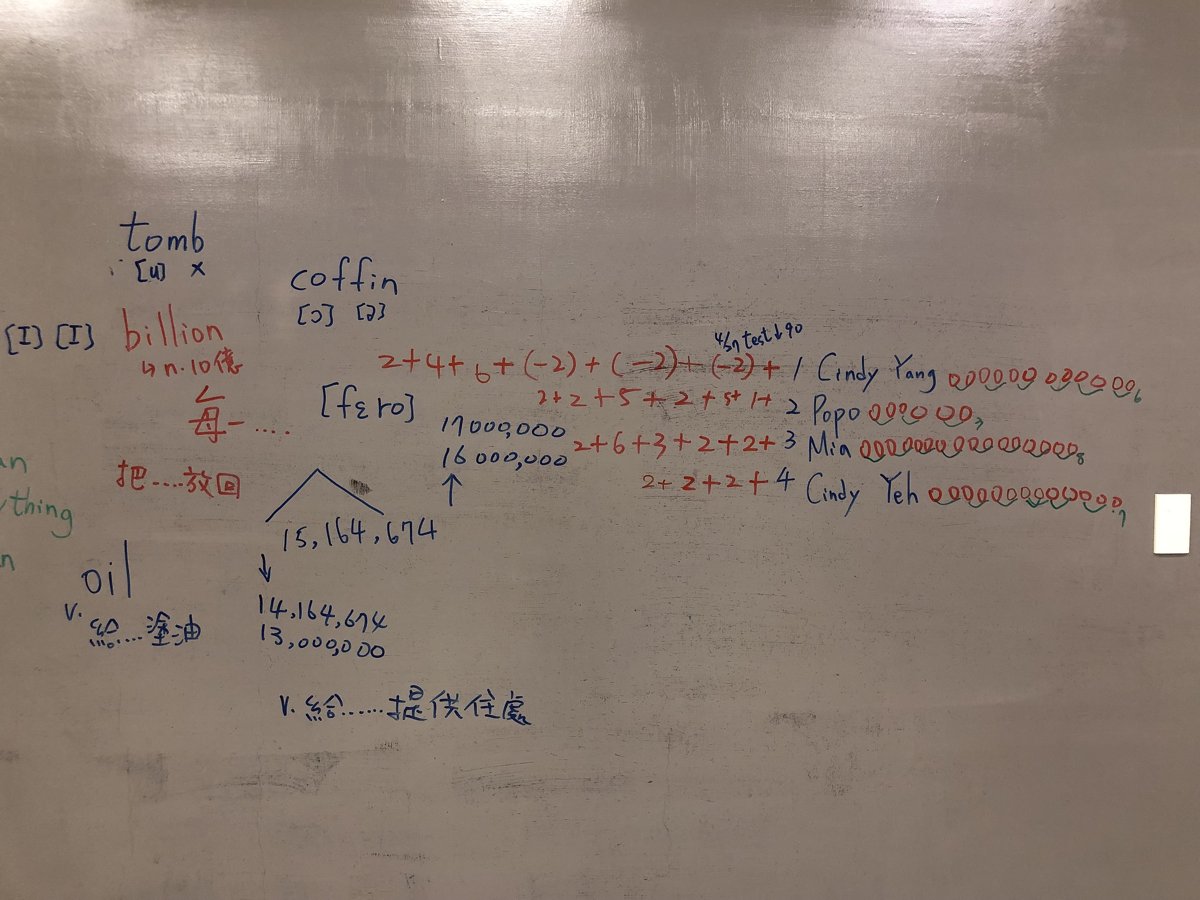 tomb
[u] x
coffin
[ɔ] [ə]
[I] [I] billion
↳ n. 10億
[fɛro]
母一....
把....放回
an
thing
n
4/27 test↓90
2+4+6+(-2)+(-2)+(-2)+ 1 Cindy Yang
2+2+5+2+5+1+ 2 Popo
2+6+3+2+2+ 3 Mia
2+2+2+ 4 Cindy Yeh
17000,000
16000,000
↑
15,164,674
↓
14,164,674
13,000,000
oil
v. 給....塗油
v. 給......提供住處